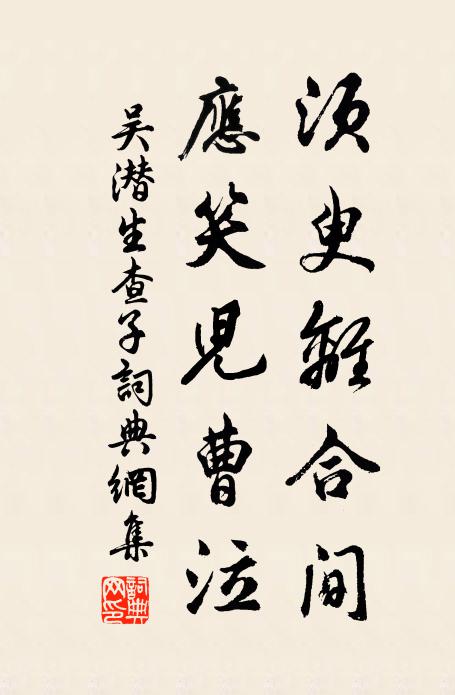 須臾離合間
應笑兒曹泣
吴潜生查子詞典網集
詞典網印